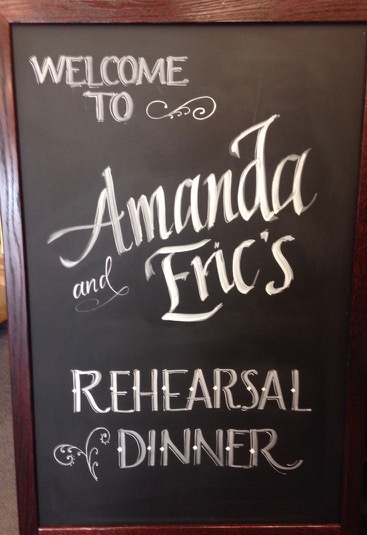 WELCOME
TO
Amanda
and Eric's
REHEARSAL
DINNER